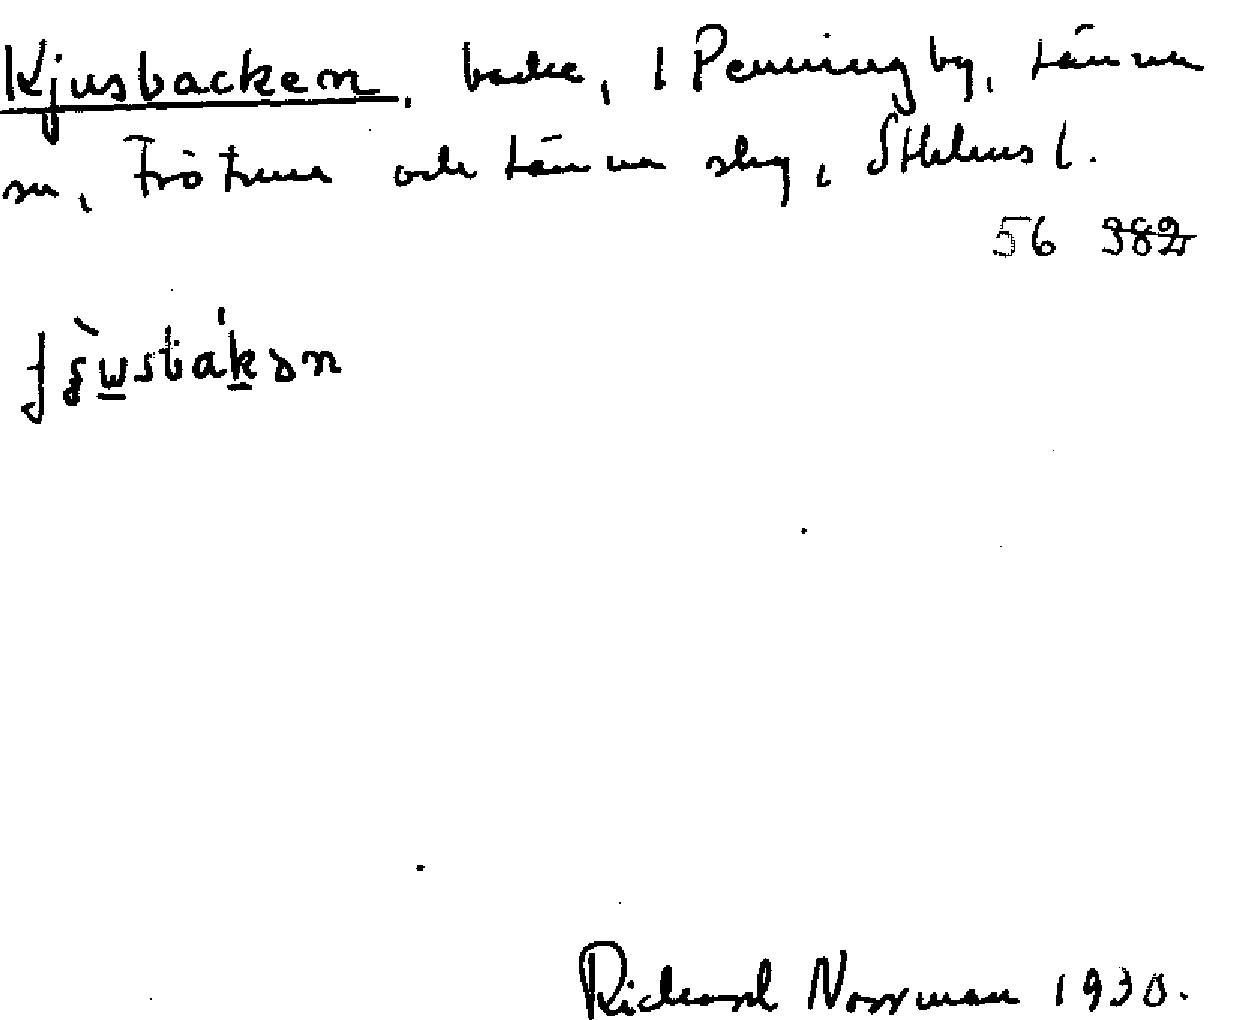 Kjusbacken, backe, i Penningby, Länna
sn, Frötuna och Länna slg, Sthlms l.
56 382
Richard Norrman 1930.